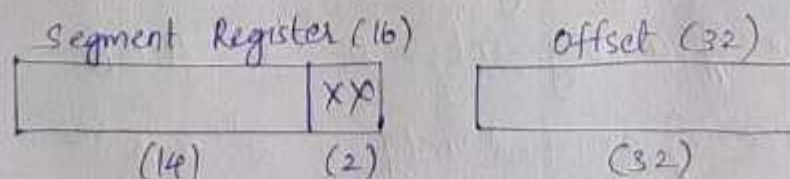 Segment Register (16) offset (32)
XX
(14) (2) (32)